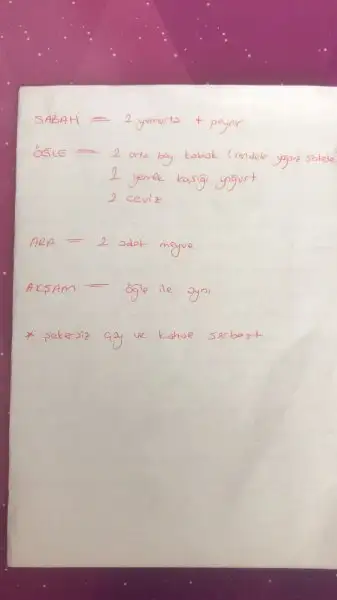 SABAH = 2 yumurta + peynir
ÖĞLE = 2 orta boy kabak (rendele
1 yemek kaşığı yoğurt
2 ceviz
ARA = 2 adet meyve
AKŞAM = öğle ile aynı
* şekersiz çay ve kahve serbest